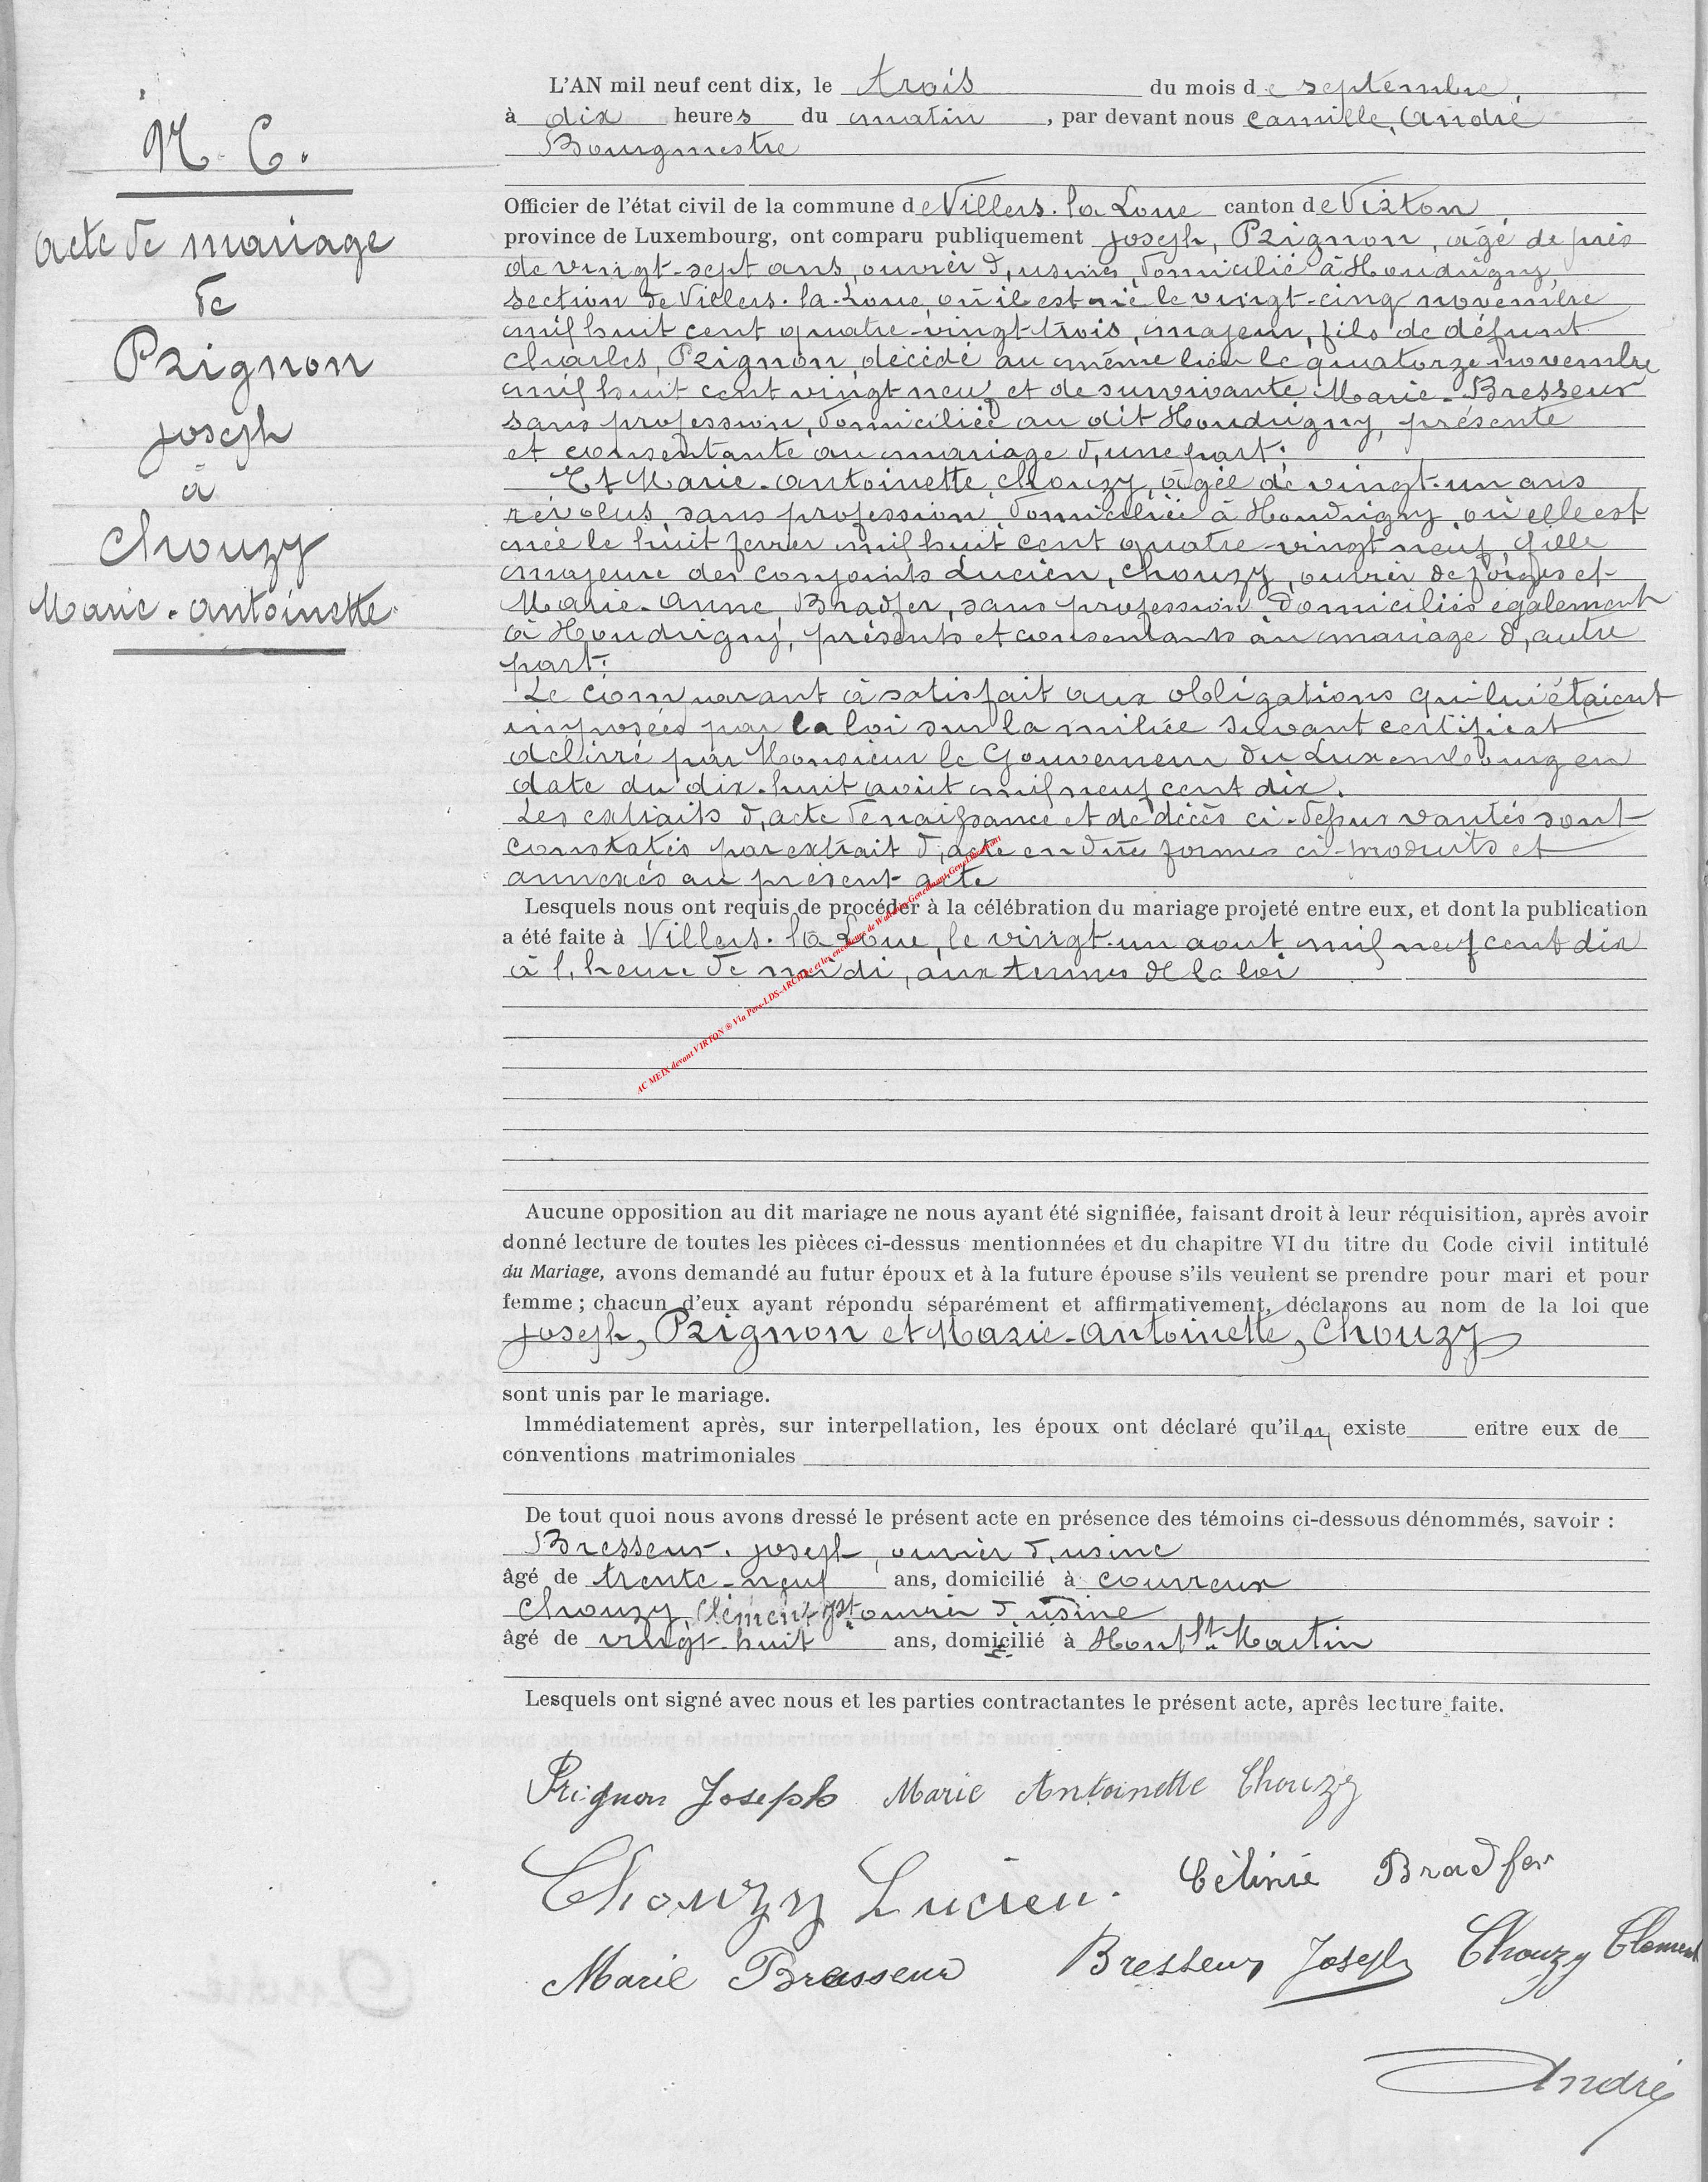 N. 6.
acte de mariage
de
Prignon
joseph
à
Chouzy
Marie-antoinette
L'AN mil neuf cent dix, le trois du mois de septembre,
à dix heures du matin, par devant nous camille, André
Bourgmestre
Officier de l'état civil de la commune de Villers-la-Loue canton de Virton,
province de Luxembourg, ont comparu publiquement joseph, Prignon, âgé de près
de vingt-sept ans, ouvrier d,usines, domicilié à Houdrigny,
section de Villers-la-Loue, où il est né le vingt-cinq novembre
mil huit cent quatre-vingt-trois, majeur, fils de défunt
charles, Prignon, décédé au même lieu le quatorze novembre
mil huit cent vingt neuf et de survivante Marie-Bresseur
sans profession, domiciliée au dit Houdrigny, présente
et consentante au mariage d,une part;
Et Marie-antoinette, chouzy, âgée de vingt-un ans
révolus, sans profession, domiciliée à Houdrigny, où elle est
née le huit fevrer mil huit cent quatre-vingt neuf, fille
majeure des conjoints Lucien, chouzy, ouvrier de forges et
Marie-Anne, Bradfer, sans profession domiciliés également
à Houdrigny, présents et consentants au mariage d,autre
part;
Le comparant à satisfait aux obligations qui lui étaient
imposées par la loi sur la milice suivant certificat
délivré par Monsieur le Gouverneur du Luxembourg en
date du dix-huit août mil neuf cent dix.
Les extraits d,acte de naissance et de décès ci-dessus vantés sont
constatés par extrait d,acte en due formes ci-produits et
annexés au présent acte
Lesquels nous ont requis de procéder à la célébration du mariage projeté entre eux, et dont la publication
a été faite à Villers-la-Loue, le vingt-un aout mil neuf cent dix
à l,heure de midi, aux termes de la loi
AC MEIX devant VIRTON ® Via Pers-LDS-ARCHive et les encodeurs de
Aucune opposition au dit mariage ne nous ayant été signifiée, faisant droit à leur réquisition, après avoir
donné lecture de toutes les pièces ci-dessus mentionnées et du chapitre VI du titre du Code civil intitulé
du Mariage, avons demandé au futur époux et à la future épouse s'ils veulent se prendre pour mari et pour
femme ; chacun d'eux ayant répondu séparément et affirmativement, déclarons au nom de la loi que
joseph, Prignon et Marie-Antoinette, Chouzy
sont unis par le mariage.
Immédiatement après, sur interpellation, les époux ont déclaré qu'il ny existe entre eux de
conventions matrimoniales
De tout quoi nous avons dressé le présent acte en présence des témoins ci-dessous dénommés, savoir :
Bresseur. joseph, ouvrier d,usine
âgé de trente-neuf ans, domicilié à couvreux
Chouzy, Clément ouvrier d,usine
âgé de vingt-huit ans, domicilié à Mont St Martin
Lesquels ont signé avec nous et les parties contractantes le présent acte, après lecture faite.
Prignon Joseph Marie Antoinette Chouzy
Chouzy Lucien. Célinie Bradfer
Marie Brasseur Bresseur Joseph Chouzy Clement
André